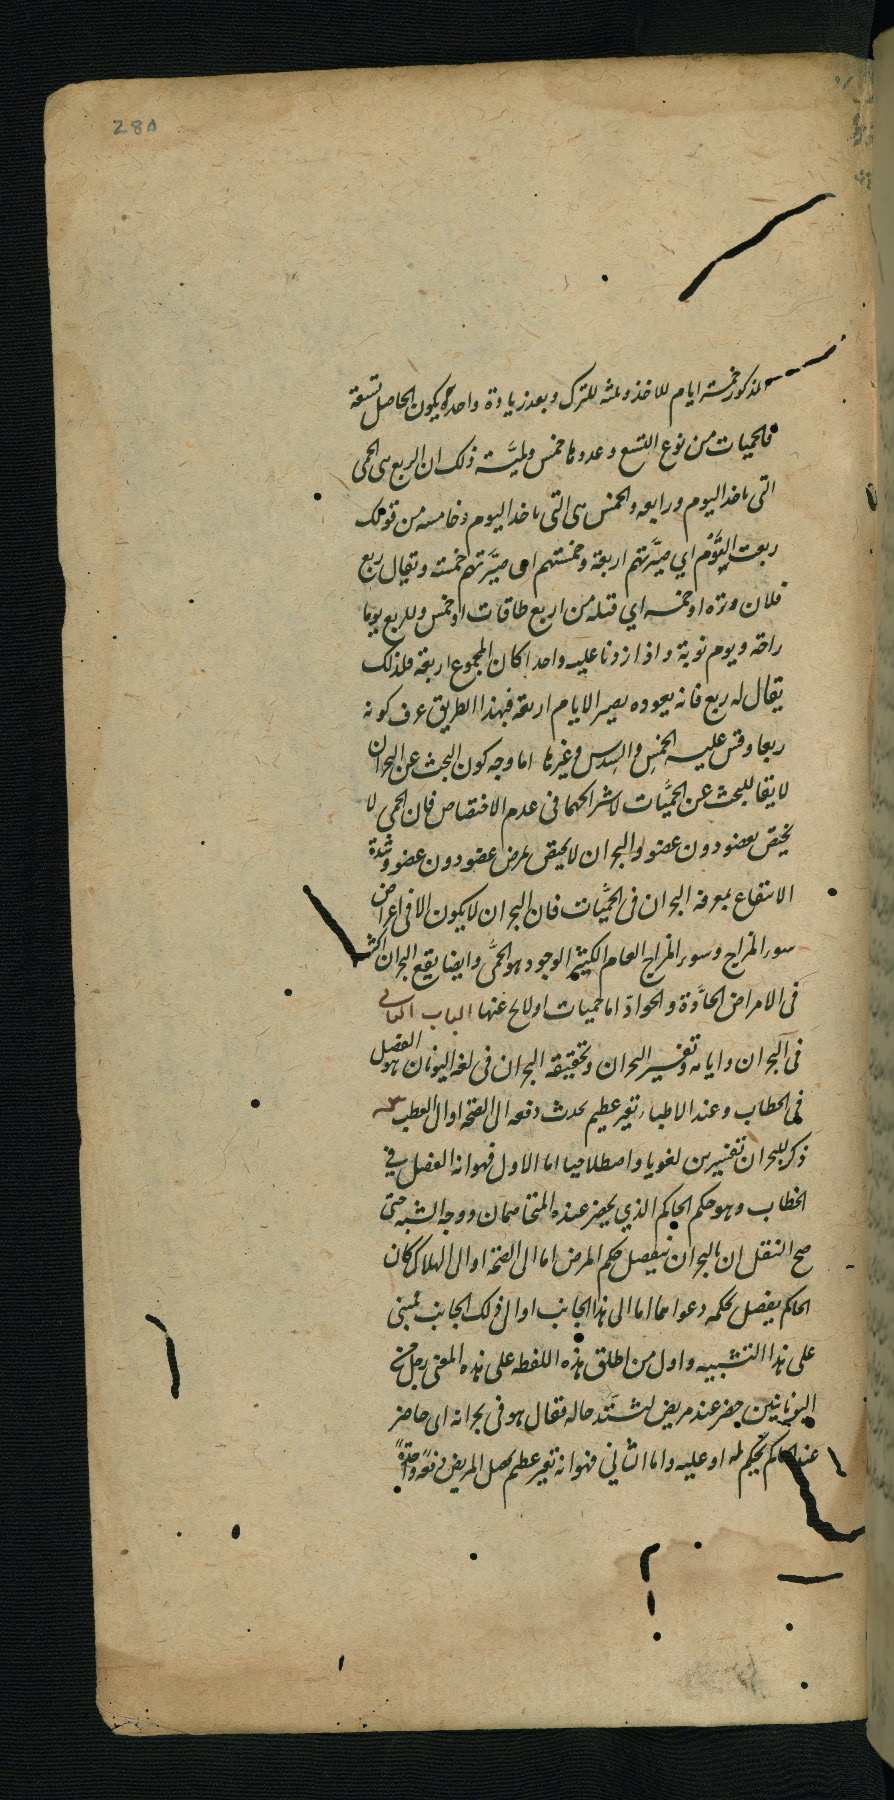 285
المذكور خمسة ايام للاخذ وثلثة للترك وبعد زيادة واحدة يكون الحاصل تسعة
فالحميات من نوع التسع وعدوها خمس ولميَّة ذلك ان الربع هى الحمى
التى تاخذ اليوم ورابعه والخمس هى التى تاخذ اليوم وخامسه من قولك
ربعت القوم اي صيَّرتهم اربعة وخمستهم اى صيَّرتهم خمسة ويقال ربع
فلان وتره او خمسه اي فتله من اربع طاقات او خمس وللربع يوما
راحة ويوم نوبة واذا زدنا عليه واحدا كان المجموع اربعة فلذلك
يقال له ربع فانه بعوده يصير الايام اربعة فبهذا الطريق عرف كونه
ربعا وقس عليه الخمس والسدس وغيرها اما وجه كون البحث عن البحران
لايقا للبحث عن الحمَّيات لاشتراكهما فى عدم الاختصاص فان الحمى لا
يختص بعضو دون عضو والبحران لا يختص بمرض عضو دون عضو وشدة
الانتفاع بمعرفة البحران فى الحمَّيات فان البحران لا يكون الا فى امراض
سوء المزاج وسوء المزاج العام الكثير الوجود هو الحمَّى وايضا يقع البحران اكثر
فى الامراض الحادَّة والحوادّ اما حميات او لا يخ عنها الباب الثانى
فى البحران وايامه وتفسير البحران وتحقيقه البحران فى لغة اليونان هو الفصل
فى الخطاب وعند الاطباء تغير عظيم يحدث دفعة الى الصحة او الى العطب
ذكر للبحران تفسيرين لغويا واصطلاحيا اما الاول فهو انه الفصل فى
الخطاب وهو حكم الحاكم الذي يحضر عنده المتخاصمان ووجه الشبه حتى
صح النقل ان بالبحران ينفصل حكم المرض اما الى الصحة او الى الهلاك كان
الحاكم يفصل بحكمه دعواهما اما الى هذا الجانب او الى ذلك الجانب فمبنى
على هذا التشبيه واول من اطلق هذه اللفظة على هذه المعنى رجل من
اليونانيين حضر عند مريض اشتَّد حاله فقال هو فى بحرانه اى حاضر
عند الحاكم يحكم له او عليه واما الثانى فهو انه تغير عظيم يحصل للمريض دفعةً واحدةً